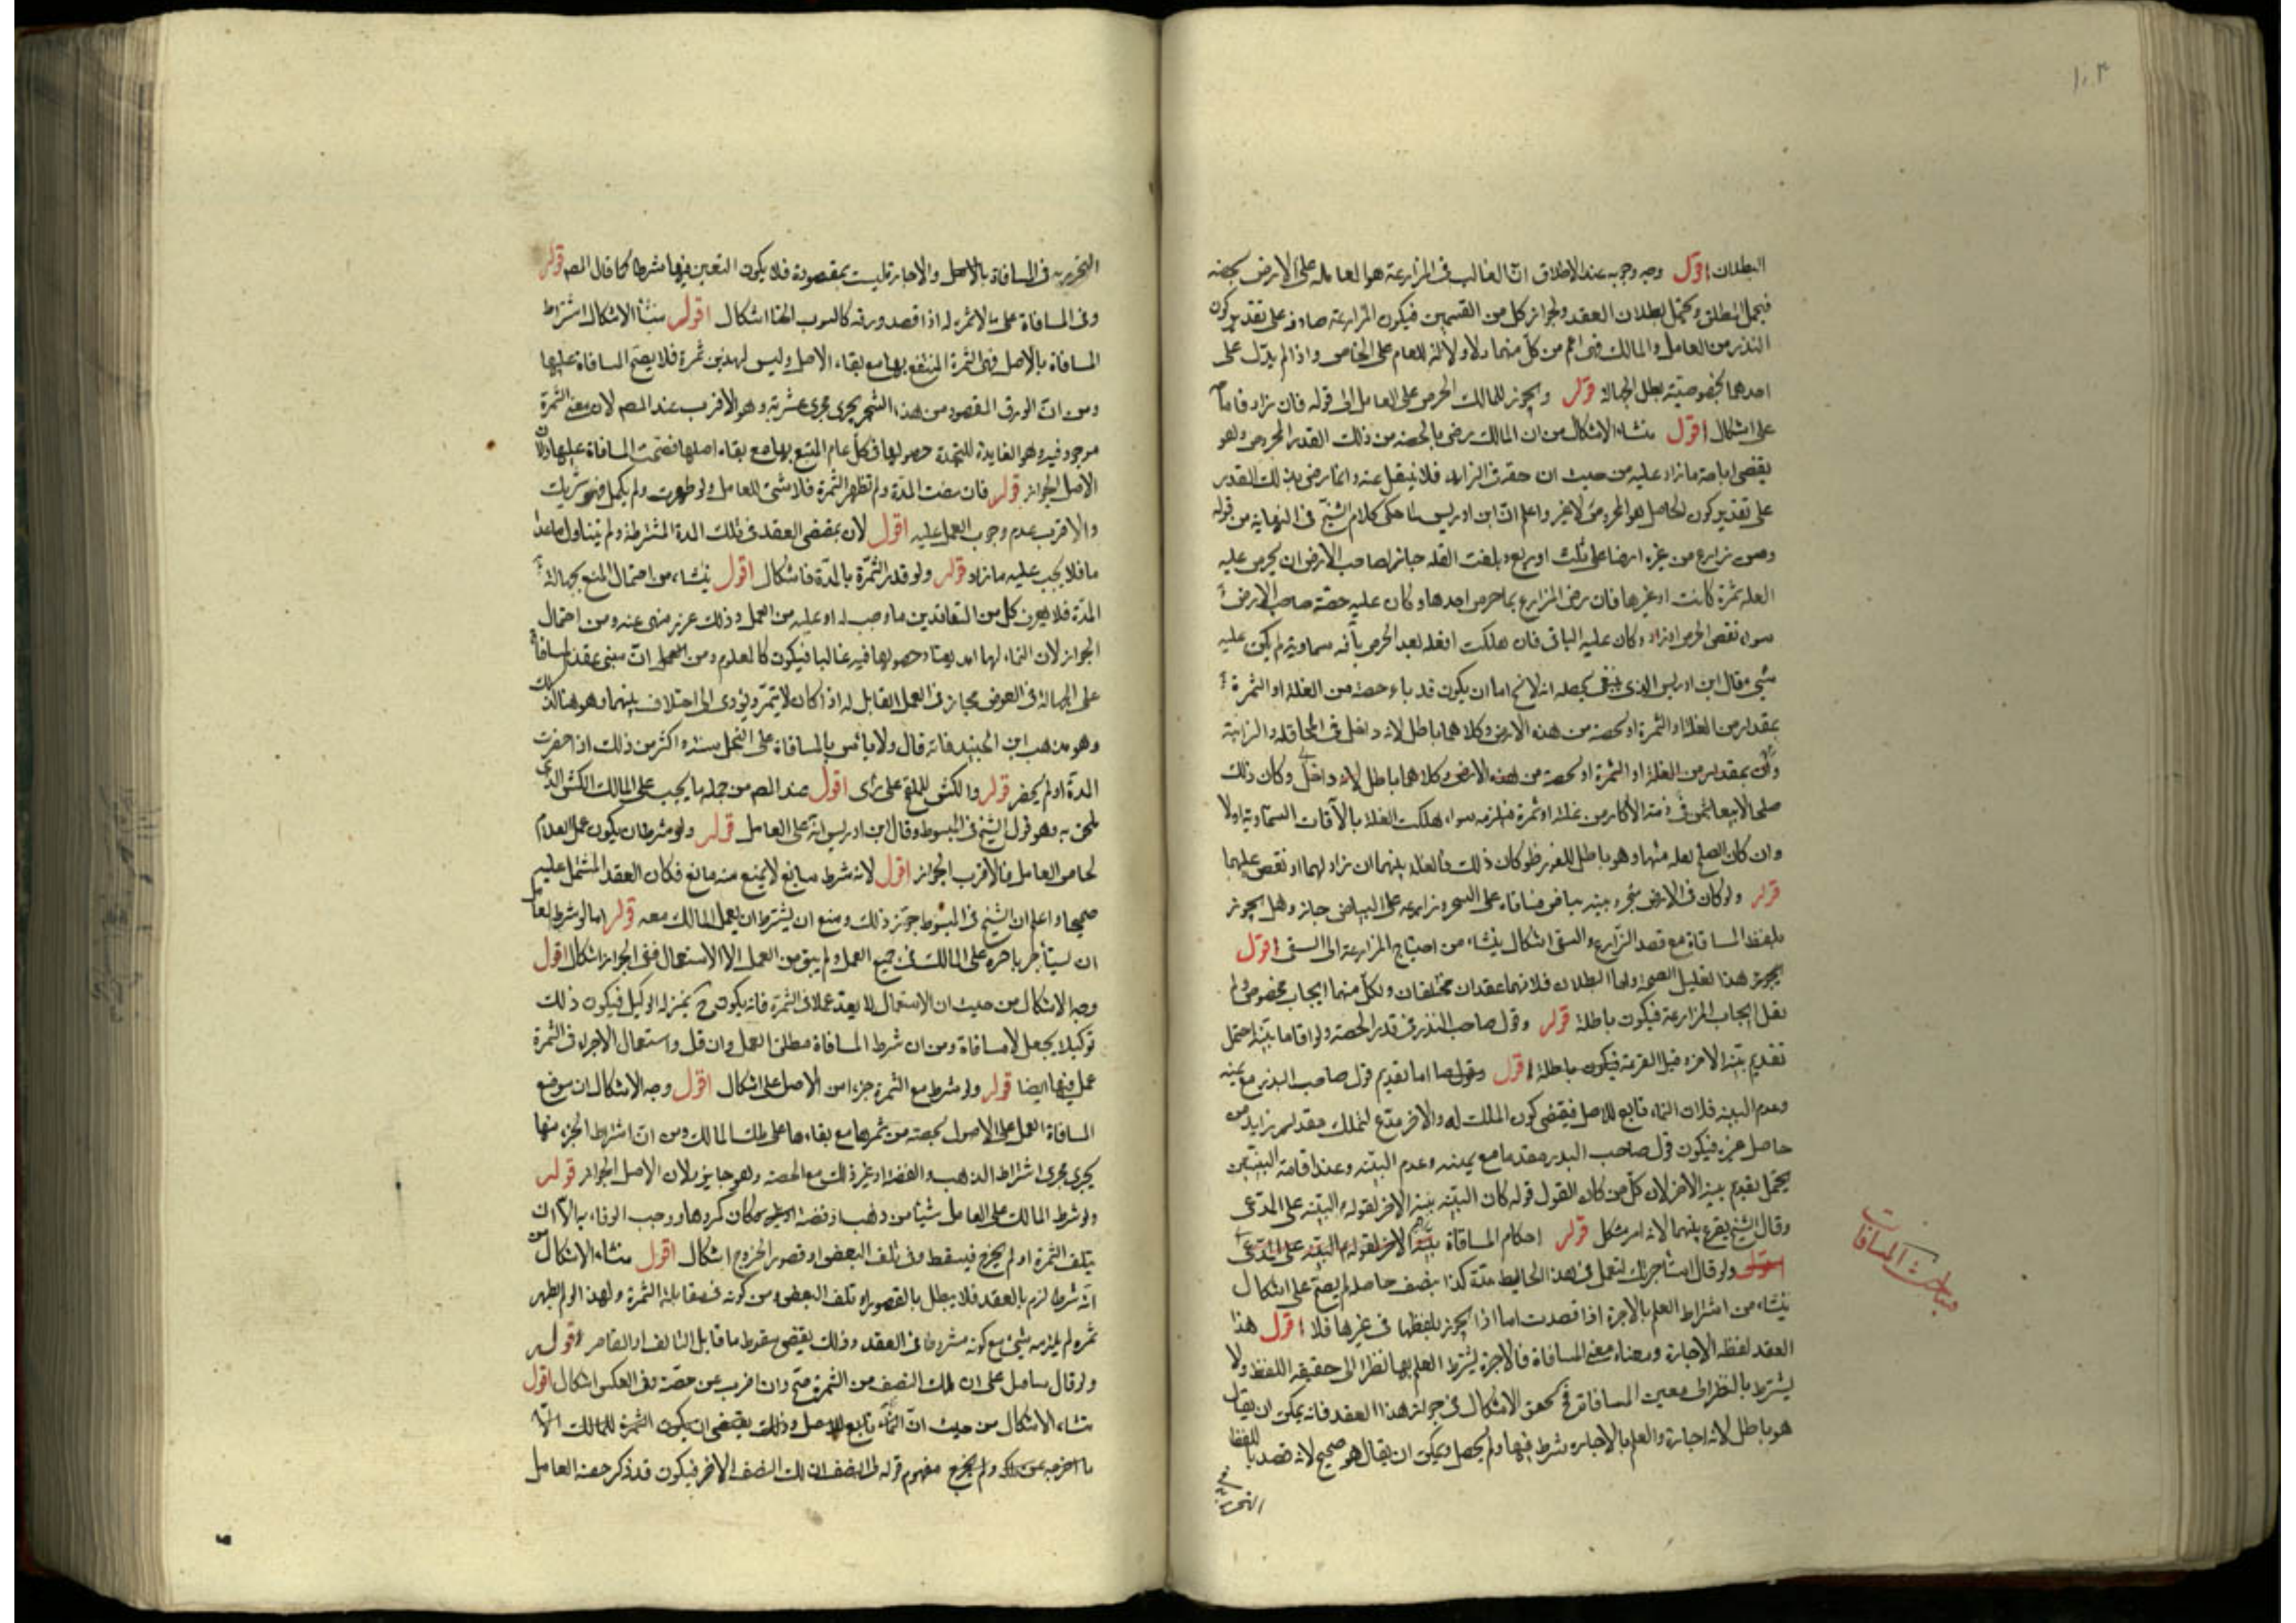 ١٠٣
البطلان اقول وجه وجوبه عند الاطلاق ان الغالب فى المزارعة هو المعاملة على الارض بحصة
فيحمل المطلق ويحتمل بطلان العقد ولجواز كل من القسمين فيكون المزارعة صادقة على تقدير كون
البذر من العامل والمالك فهى اعم من كل منهما ولا دلالة للعام على الخاص واذا لم يدل على
احدهما بخصوصيته بطل لجهالة قوله ويجوز للمالك الخرص على العامل الى قوله فان زاد فاباحة
على اشكال اقول منشاء الاشكال من ان المالك رضى بالحصة من ذلك القدر المخروص وهو
يقتضى اباحة ما زاد عليه من حيث ان حقه الزايد فلا ينتقل عنه وانما رضى بذلك القدر
على تقدير كون الحاصل هو المخروص لا غير واعلم ان ابن ادريس لما حكى كلام الشيخ فى النهاية من قوله
ومن زارع من غيره ارضا على ثلث او ربع وبلغت الغلة جاز لصاحب الارض ان يخرص عليه
الغلة ثمرة كانت او غيرها فان رضى المزارع بما خرص اخذها وكان عليه حصة صاحب الارض
سواء نقص الخرص او زاد وكان عليه الباقى فان هلكت الغلة بعد الخرص بآفة سماوية لم يكن عليه
شئ فقال ابن ادريس الذى ينبغى تحصيله انه لا يخ اما ان يكون قد باع حصة من الغلة او الثمرة
بمقدار من الغلة او الثمرة او بحصة من هذه الارض وكلاهما باطل لانه داخل فى المحاقلة والمزابنة
وان بمقدار من الغلة او الثمرة او بحصة من هذه الارض وكلاهما باطل لانه داخل وكان ذلك
صلحا لا بيعا بثمن فى ذمة الاكار من غلة او ثمرة فيلزمه سواء هلكت الغلة بالآفات السماوية اولا
وان كان الصلح بغلة منها وهو باطل للغرر فلو كان ذلك فالغلة بينهما ان زاد لهما او نقص عليهما
قوله ولو كان فى الارض شجر وبينه بياض فساقاه على الشجر وزارعه على البياض جاز وهل يجوز
بلفظ المساقاة مع قصد الزارع والسقى اشكال ينشاء من احتياج المزارعة الى السقى اقول
يجوز هذا تعليل الصحة واما البطلان فلانهما عقدان مختلفان ولكل منهما ايجاب مخصوص ولم
يقل ايجاب المزارعة فيكون باطلة قوله وقول صاحب البذر فى قدر الحصة ولو اقاما بينة احتمل
تقديم بينة الآخر وقيل القرعة فيكون باطلة اقول اما تقديم قول صاحب البذر مع يمينه
وعدم البينة فلان النماء تابع للاصل فيقتضى كون الملك له والآخر مدع لتملك مقدار زايد من
حاصل غيره فيكون قول صاحب البذر مقدما مع يمينه وعدم البينة وعند اقامة البينتين
يحتمل تقديم بينة الآخر لان كل من كان القول قوله كان البينة بينة الآخر لقوله ع البينة على المدعى
وقال الشيخ يقرع بينهما لانه امر مشكل قوله احكام المساقاة بينة الآخر لقوله ع البينة على المدعى
ولو قال استاجرتك لتعمل فى هذا الحايط مدة كذا بنصف حاصله لم يصح على اشكال
ينشاء من اشتراط العلم بالاجرة اذا قصدت اما اذا تجوز بلفظها فى غيرها فلا اقول هذا
العقد لفظه الاجارة ومعناه معنى المساقاة فالاجرة يشترط العلم بها نظرا الى حقيقة اللفظ ولا
يشترط بالنظر الى معنى المساقاة فح تحقق الاشكال فى جواز هذا العقد فانه يمكن ان يقال
هو باطل لانه اجارة والعلم بالاجارة شرط فيها ولم يحصل ويمكن ان يقال هو صحيح لانه قصد باللفظ
مباحث المساقات
التحرير به فى المساقاة بالاصل والاجارة ليست بمقصودة فلا يكون التعيين فيها شرطا كما قال المصـ قوله
وفى المساقاة على ما لا ثمرة له اذا قصد ورقه كالتوت والحنا اشكال اقول ينشأ الاشكال اشتراط
المساقاة بالاصل فهى الثمرة المنتفع بها مع بقاء الاصل وليس لهذين ثمرة فلا يصح المساقاة عليها
ومن ان الورق المقصود من هذا الشجر يجرى مجرى ثمرته وهو الاقرب عند المصـ لان معنى الثمرة
موجود فيه وهو الفايدة المتجددة حصولها فى كل عام المنتفع بها مع بقاء اصلها فصحت المساقاة عليها ولان
الاصل الجواز قوله فان مضت المدة ولم تظهر الثمرة فلا شئ للعامل ولو ظهرت ولم يكمل فهو شريك
والاقرب عدم وجوب العمل عليه اقول لان مقتضى العقد فى تلك المدة المشترطة ولم يتناول ما عدا
ها فلا يجب عليه ما زاد قوله ولو قدر الثمرة بالمدة فاشكال اقول ينشاء من احتمال المنع لجهالة
المدة فلا يعرف كل من المتعاقدين ما وجب له او عليه من العمل وذلك غرر منهى عنه ومن احتمال
الجواز لان النماء لها امد يعتاد حصولها فيه غالبا فيكون كالمعلوم ومن ان مبنى عقد المساقاة
على الجهالة فى العوض فجاز فى العمل المقابل له اذا كان لا يتمر ويؤدى الى اختلاف بينهما وهو هنا كذلك
وهو مذهب ابن الجنيد فانه قال ولا بأس بالمساقاة على النخل سنة واكثر من ذلك اذا حضرت
المدة او لم يحضر قوله والكش للتلقيح على رأى اقول عند المصـ من جملة ما يجب على المالك الكش الذى
يلقح به وهو قول الشيخ فى المبسوط وقال ابن ادريس انه على العامل قوله ولو شرطا ان يكون عمل الغلام
لخاص العامل فالاقرب الجواز اقول لانه شرط سايغ لا يمنع منه مانع فكان العقد المشتمل عليه
صحيحا واعلم ان الشيخ فى المبسوط جوز ذلك ومنع ان يشترط ان يعمل المالك معه قوله اما لو شرط العامل
ان يستأجر باجرة على المالك فى جميع العمل ولم يبق من العمل الا الاستعمال ففى الجواز اشكال اقول
وجه الاشكال من حيث ان الاستعمال لا يعد عملا فى الثمرة فانه يكون ح بمنزلة الوكيل فيكون ذلك
توكيلا بجعل لا مساقاة ومن ان شرط المساقاة مطلق العمل وان قل واستعمال الاجراء فى الثمرة
عمل فيها ايضا قوله ولو شرط مع الثمرة جزءا من الاصل على اشكال اقول وجه الاشكال ان موضع
المساقاة العمل على الاصول بحصة من ثمرها مع بقاءها على ملك المالك ومن ان اشتراط الجزء منها
يجرى مجرى اشتراط الذهب والفضة او غير ذلك مع الحصة وهو جايز ولان الاصل الجواز قوله
ولو شرط المالك على العامل شيئا من ذهب او فضة كان مكروها ووجب الوفاء به الا ان
يتلف الثمرة او لم يخرج فيسقط وفى تلف البعض او قصور الخروج اشكال اقول منشاء الاشكال من
انه شرط لزم بالعقد فلا يبطل بالقصور او تلف البعض ومن كونه فى مقابلة الثمرة ولهذا لو لم يظهر
ثمرة لم يلزمه شئ مع كونه مشروطا فى العقد وذلك يقتضى سقوط ما قابل التالف او القاصر قوله
ولو قال ساقيتك على ان لك النصف من الثمرة صح وان اضرب عن حصته وفى العكس اشكال اقول
منشاء الاشكال من حيث ان النماء تابع للاصل وذلك يقتضى ان يكون الثمرة للمالك الا
ما اخرجه عن ملكه ولم يخرج مفهوم قوله لى النصف ان لك النصف الآخر فيكون قد ذكر حصة العامل